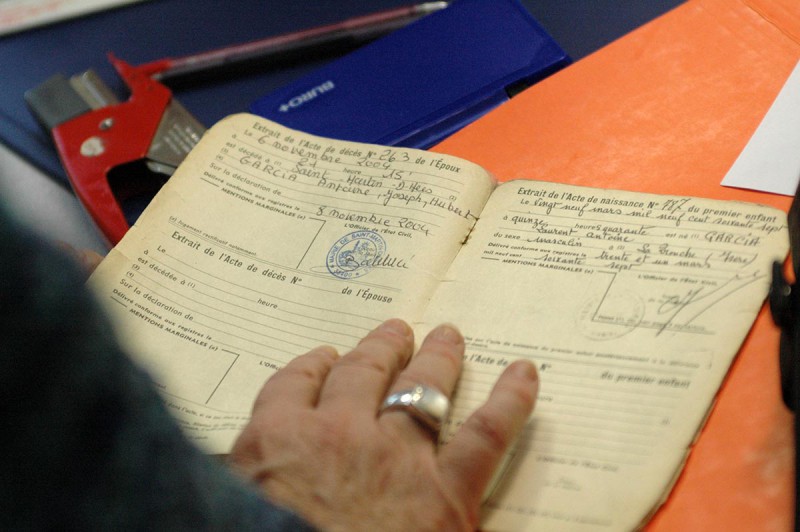 BURO+
Extrait de l'Acte de décès N° 263 de l'Époux
Le 6 novembre 2004
à 21 heure 15'
est décédé à (1) Saint Martin d'Hères
GARCIA Antoine, Joseph, Hubert
Sur la déclaration de
Délivré conforme aux registres le 8 novembre 2004
MENTIONS MARGINALES (2)
L'Officier de l'État Civil,
Extrait de l'Acte de décès N° de l'Épouse
Le
à heure
est décédée à (1)
Sur la déclaration de
Délivré conforme aux registres le
MENTIONS MARGINALES (2)
Extrait de l'Acte de naissance N° 787 du premier enfant
Le vingt neuf mars mil neuf cent soixante sept
à quinze heures quarante est né (1) GARCIA
Laurent Antoine
du sexe masculin à (1) La Tronche (Isère)
Délivré conforme aux registres le trente et un mars
mil neuf cent soixante sept
MENTIONS MARGINALES (2)
L'Officier de l'État Civil,
de l'Acte de N° du premier enfant
L'Officier de l'État Civil